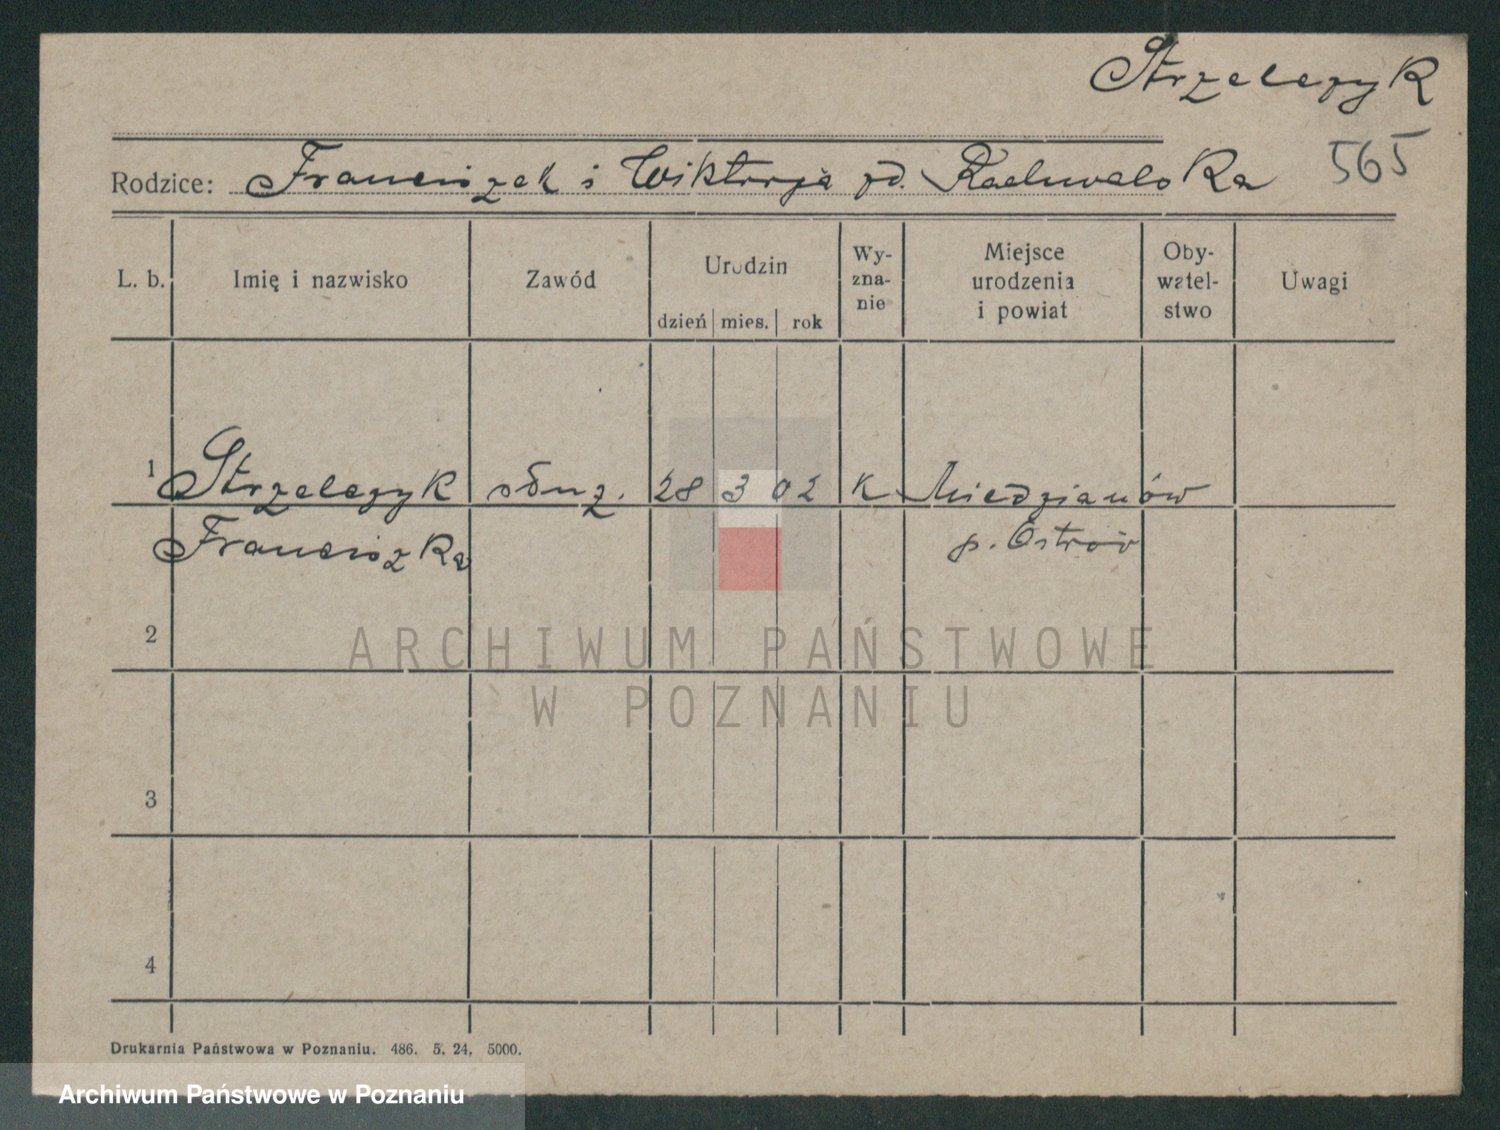 Strzelczyk
Rodzice: Franciszek i Wiktorja zd. Rachwalska 565
L. b. Imię i nazwisko Zawód Urodzin Wy-zna-nie Miejsce urodzenia i powiat Oby-watel-stwo Uwagi
dzień mies. rok
1 Strzelczyk służ. 28 3 02 K Miedzianów
Franciszka p. Ostrów
2
ARCHIWUM PAŃSTWOWE
W POZNANIU
3
4
Drukarnia Państwowa w Poznaniu. 486. 5. 24. 5000.
Archiwum Państwowe w Poznaniu